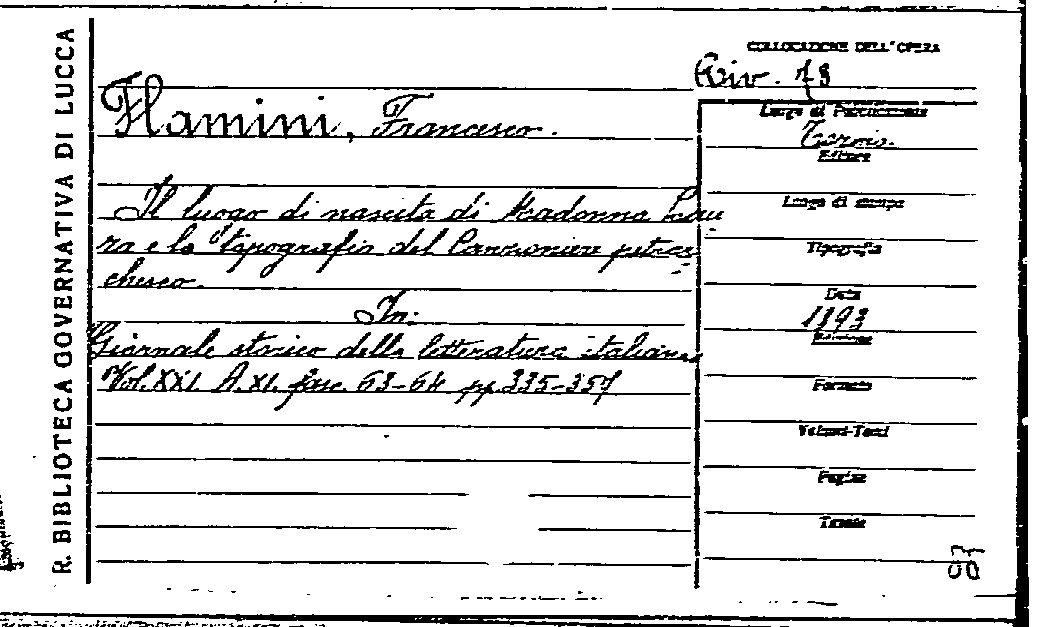 R. BIBLIOTECA GOVERNATIVA DI LUCCA
COLLOCAZIONE DELL'OPERA
Riv. 73
Flamini, Francesco.
Il luogo di nascita di Madonna Lau
ra e la topografia del Canzoniere petrar
chesco.
In:
Giornale storico della letteratura italiana
Vol. XXI. A. XI. fasc. 63-64 pp. 335-357
Luogo di Pubblicazione
Torino.
Editore
Luogo di stampa
Tipografia
Data
1893
Edizione
Formato
Volumi-Tomi
Pagine
Tavole